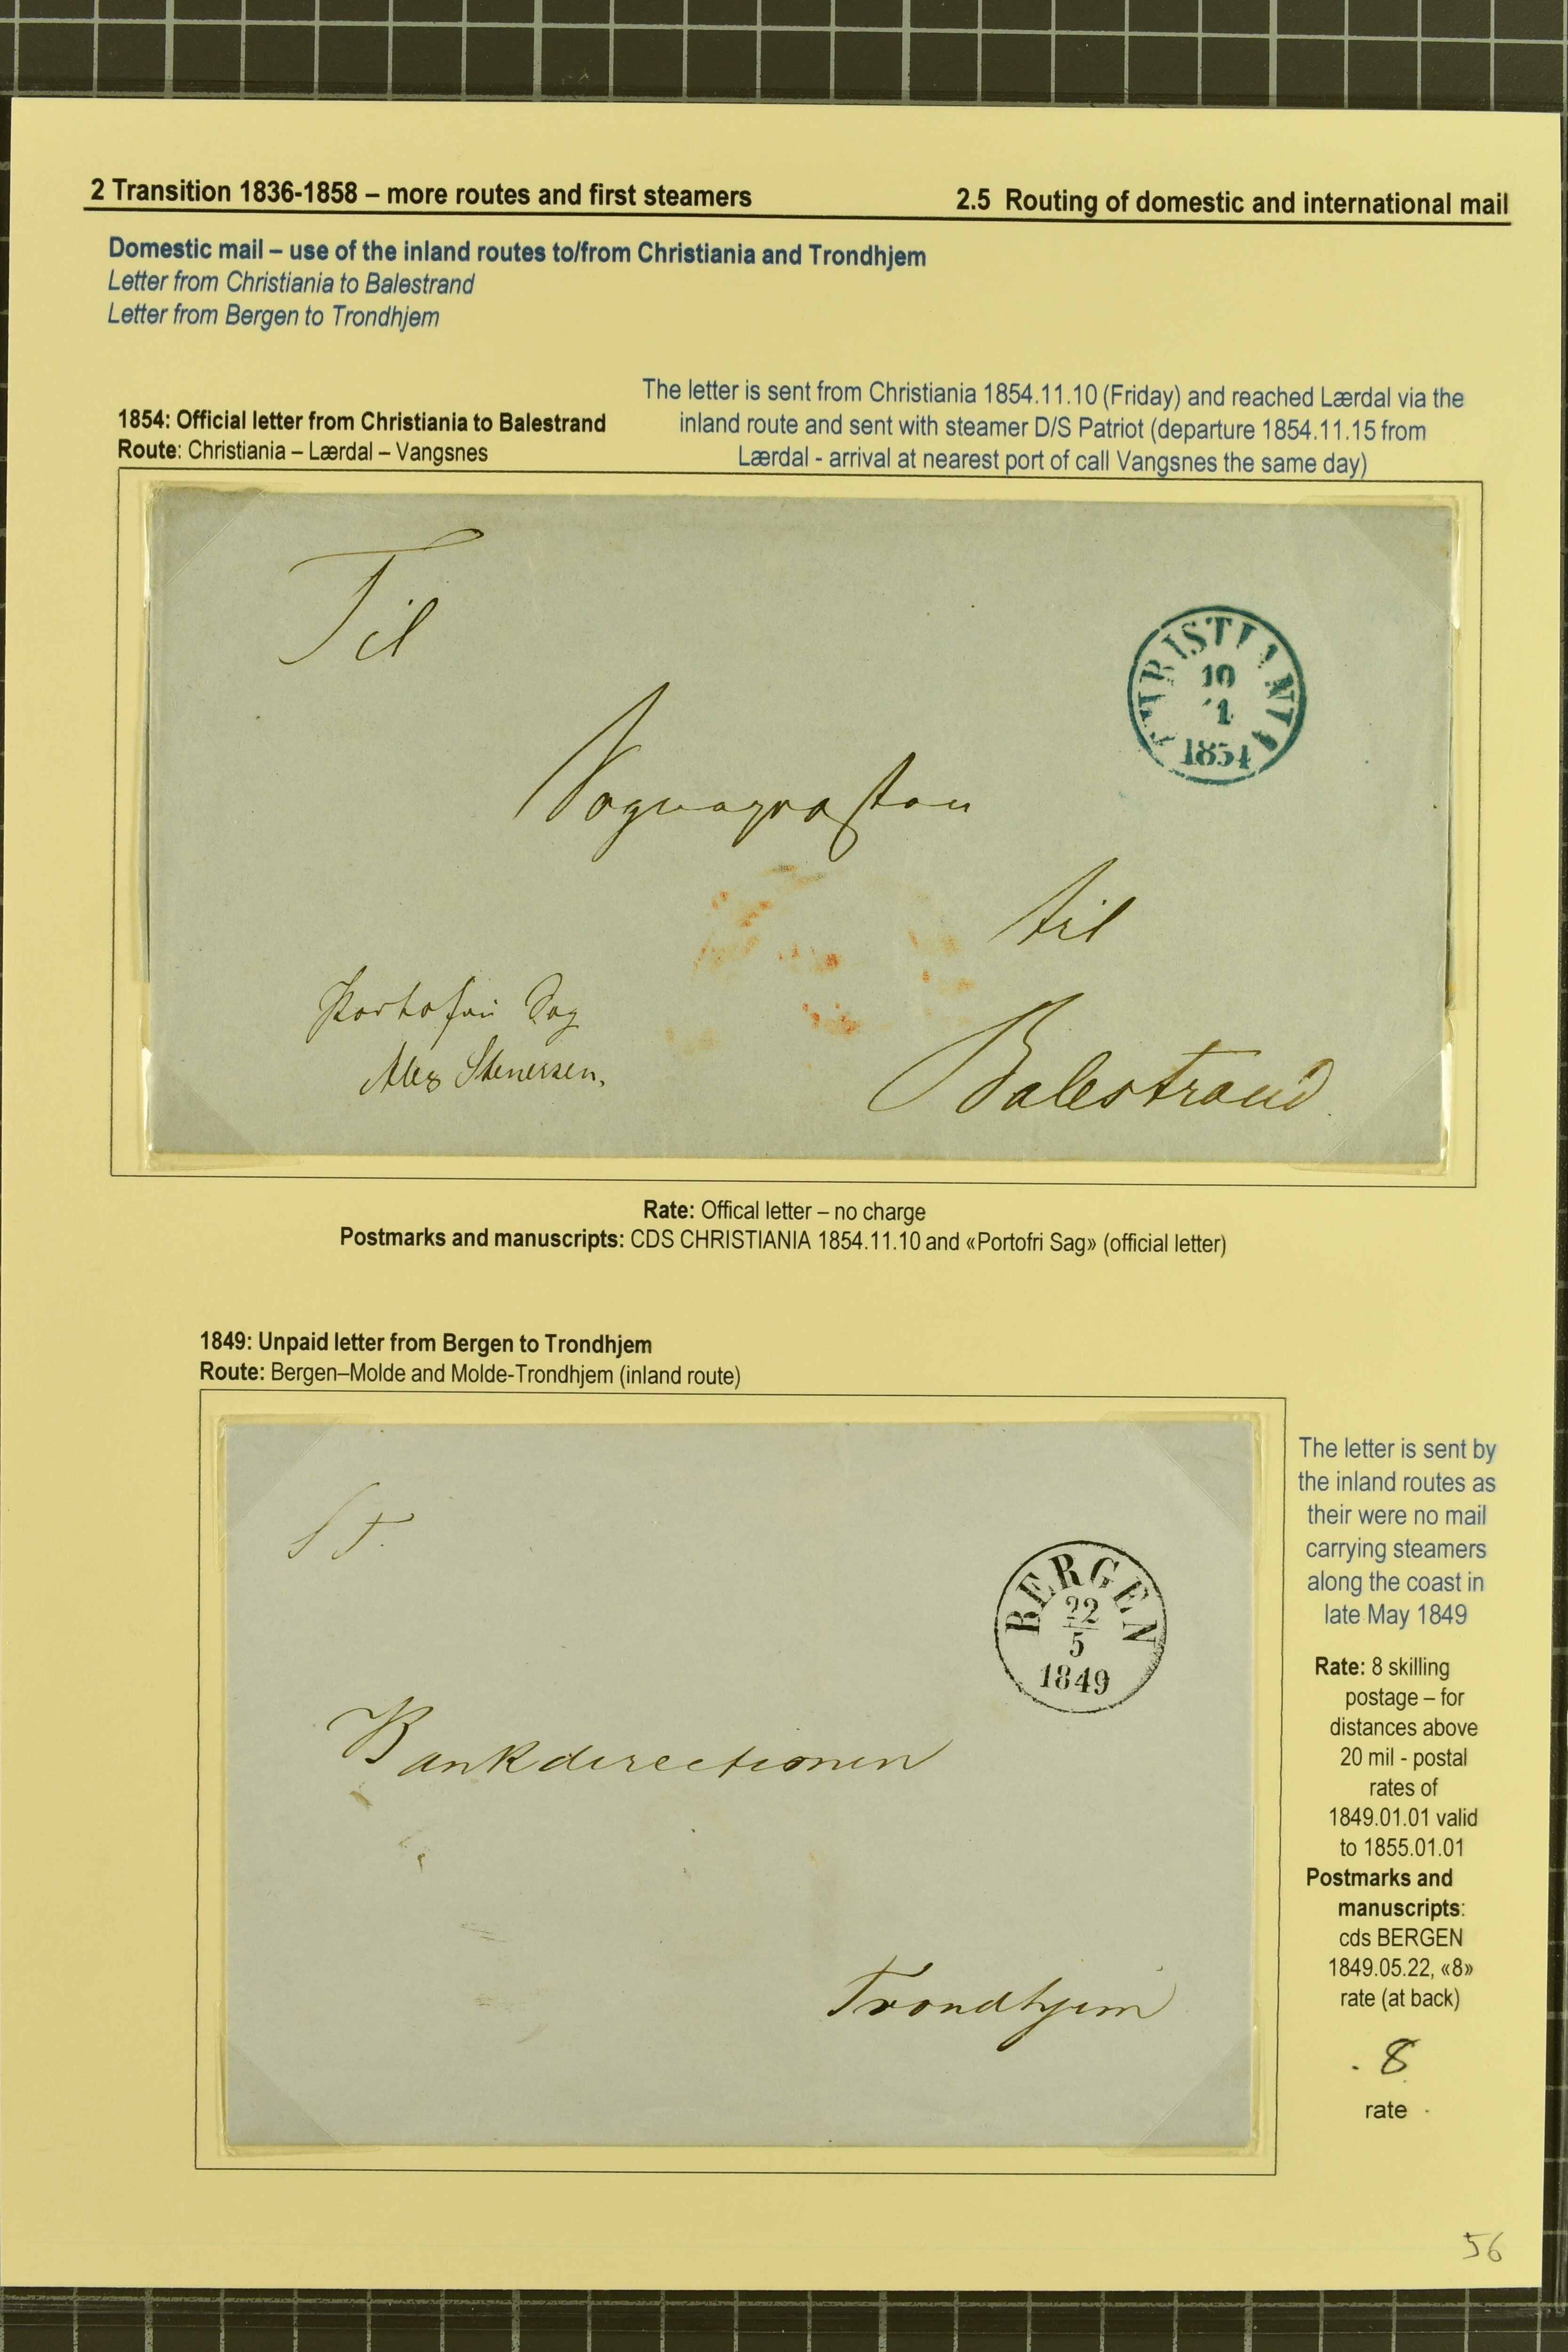 2 Transition 1836-1858 – more routes and first steamers
2.5 Routing of domestic and international mail
Domestic mail – use of the inland routes to/from Christiania and Trondhjem
Letter from Christiania to Balestrand
Letter from Bergen to Trondhjem
The letter is sent from Christiania 1854.11.10 (Friday) and reached Lærdal via the
inland route and sent with steamer D/S Patriot (departure 1854.11.15 from
Lærdal - arrival at nearest port of call Vangsnes the same day)
1854: Official letter from Christiania to Balestrand
Route: Christiania – Lærdal – Vangsnes
Til
CHRISTIANIA
10
11
1854
Sognepræsten
til
Portofri Sag
Alex Stenersen.
Balestrand.
Rate: Offical letter – no charge
Postmarks and manuscripts: CDS CHRISTIANIA 1854.11.10 and «Portofri Sag» (official letter)
1849: Unpaid letter from Bergen to Trondhjem
Route: Bergen–Molde and Molde-Trondhjem (inland route)
S T.
BERGEN
22
5
1849
Bankdirectionen
Trondhjem
The letter is sent by
the inland routes as
their were no mail
carrying steamers
along the coast in
late May 1849
Rate: 8 skilling
postage – for
distances above
20 mil - postal
rates of
1849.01.01 valid
to 1855.01.01
Postmarks and
manuscripts:
cds BERGEN
1849.05.22, «8»
rate (at back)
8
rate
56